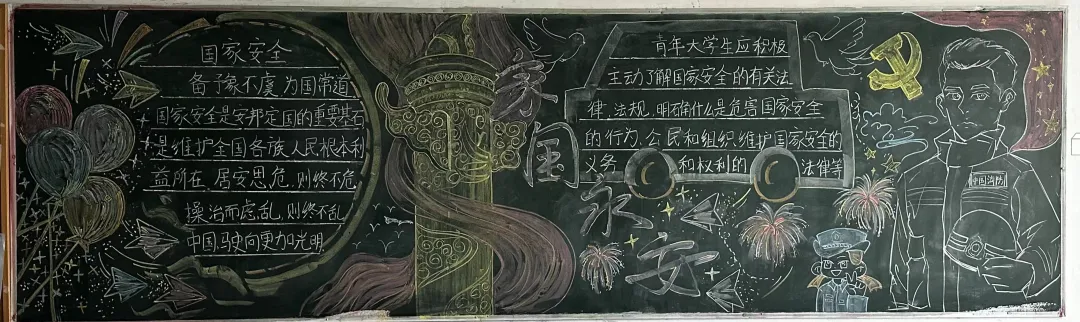 国家安全
备予豫不虞,为国常道
国家安全是安邦定国的重要基石
是维护全国各族人民根本利
益所在,居安思危,则终不危
操治而虑乱,则终不乱
中国,驶向更加光明
家国永安
青年大学生应积极
主动了解国家安全的有关法
律、法规,明确什么是危害国家安全
的行为、公民和组织维护国家安全的
义务和权利的法律等
中国消防